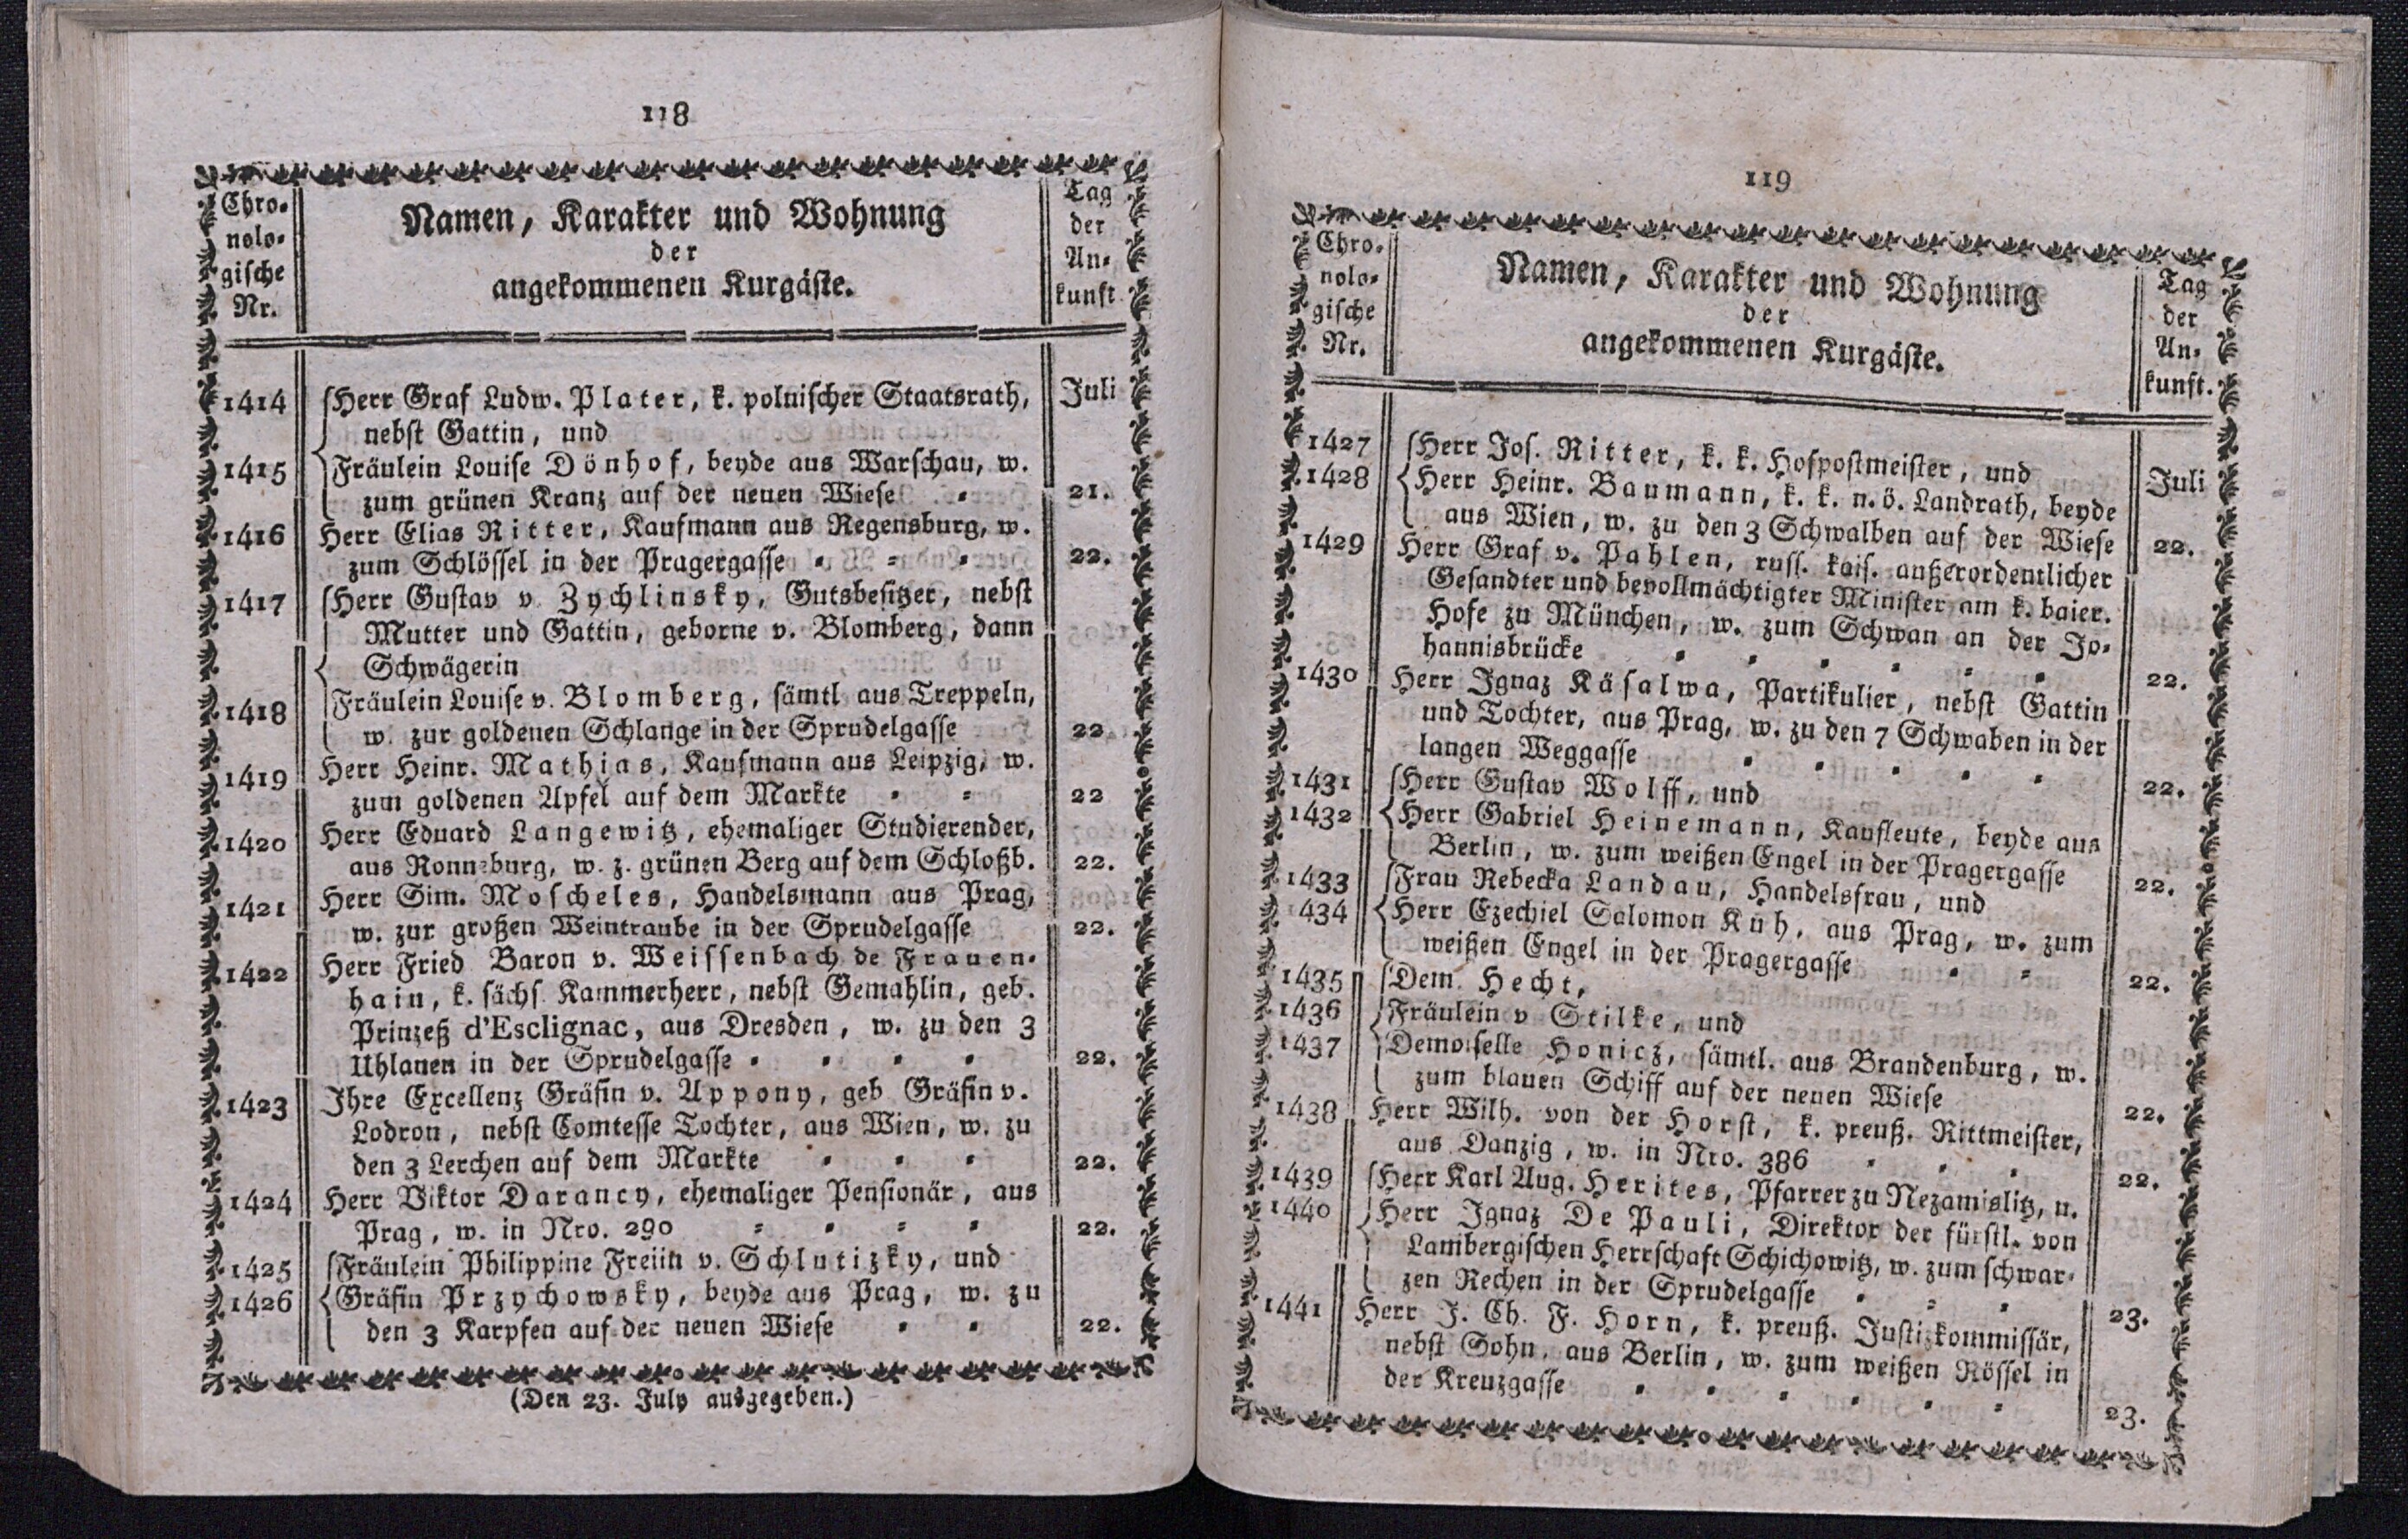 118
Chro-
nolo-
gische
Nr.
Namen, Karakter und Wohnung
der
angekommenen Kurgäste.
Tag
der
An-
kunft
1414 Herr Graf Ludw. Plater, k. polnischer Staatsrath, Juli
nebst Gattin, und
1415 Fräulein Louise Dönhof, beyde aus Warschau, w.
zum grünen Kranz auf der neuen Wiese 21.
1416 Herr Elias Ritter, Kaufmann aus Regensburg, w.
zum Schlössel in der Pragergasse 22.
1417 Herr Gustav v Zychlinsky, Gutsbesitzer, nebst
Mutter und Gattin, geborne v. Blomberg, dann
Schwägerin
1418 Fräulein Louise v. Blomberg, sämtl aus Treppeln,
w. zur goldenen Schlange in der Sprudelgasse 22
1419 Herr Heinr. Mathias, Kaufmann aus Leipzig, w.
zum goldenen Apfel auf dem Markte 22
1420 Herr Eduard Langewitz, ehemaliger Studierender,
aus Ronneburg, w. z. grünen Berg auf dem Schloßb. 22.
1421 Herr Sim. Moscheles, Handelsmann aus Prag,
w. zur großen Weintraube in der Sprudelgasse 22.
1422 Herr Fried Baron v. Weissenbach de Frauen-
hain, k. sächs. Kammerherr, nebst Gemahlin, geb.
Prinzeß d'Esclignac, aus Dresden, w. zu den 3
Uhlanen in der Sprudelgasse 22.
1423 Ihre Excellenz Gräfin v. Appony, geb Gräfin v.
Lodron, nebst Comtesse Tochter, aus Wien, w. zu
den 3 Lerchen auf dem Markte 22.
1424 Herr Viktor Darancy, ehemaliger Pensionär, aus
Prag, w. in Nro. 290 22.
1425 Fräulein Philippine Freiin v. Schlutizky, und
1426 Gräfin Przychowsky, beyde aus Prag, w. zu
den 3 Karpfen auf der neuen Wiese 22.
(Den 23. July ausgegeben.)
119
Chro-
nolo-
gische
Nr.
Namen, Karakter und Wohnung
der
angekommenen Kurgäste.
Tag
der
An-
kunft.
1427 Herr Jos. Ritter, k. k. Hofpostmeister, und Juli
1428 Herr Heinr. Baumann, k. k. n. ö. Landrath, beyde
aus Wien, w. zu den 3 Schwalben auf der Wiese 22.
1429 Herr Graf v. Pahlen, russ. kais. außerordentlicher
Gesandter und bevollmächtigter Minister am k. baier.
Hofe zu München, w. zum Schwan an der Jo-
hannisbrücke 22.
1430 Herr Ignaz Käsalwa, Partikulier, nebst Gattin
und Tochter, aus Prag, w. zu den 7 Schwaben in der
langen Weggasse 22.
1431 Herr Gustav Wolff, und
1432 Herr Gabriel Heinemann, Kaufleute, beyde aus
Berlin, w. zum weißen Engel in der Pragergasse 22.
1433 Frau Rebecka Landau, Handelsfrau, und
434 Herr Ezechiel Salomon Kuh, aus Prag, w. zum
weißen Engel in der Pragergasse 22.
1435 Dem. Hecht,
1436 Fräulein v Stilke, und
1437 Demoiselle Honicz, sämtl. aus Brandenburg, w.
zum blauen Schiff auf der neuen Wiese 22.
1438 Herr Wilh. von der Horst, k. preuß. Rittmeister,
aus Danzig, w. in Nro. 386 22.
1439 Herr Karl Aug. Herites, Pfarrer zu Nezamislitz, u.
1440 Herr Ignaz De Pauli, Direktor der fürstl. von
Lambergischen Herrschaft Schichowitz, w. zum schwar-
zen Rechen in der Sprudelgasse 23.
1441 Herr J. Ch. F. Horn, k. preuß. Justizkommissär,
nebst Sohn, aus Berlin, w. zum weißen Rössel in
der Kreuzgasse 23.